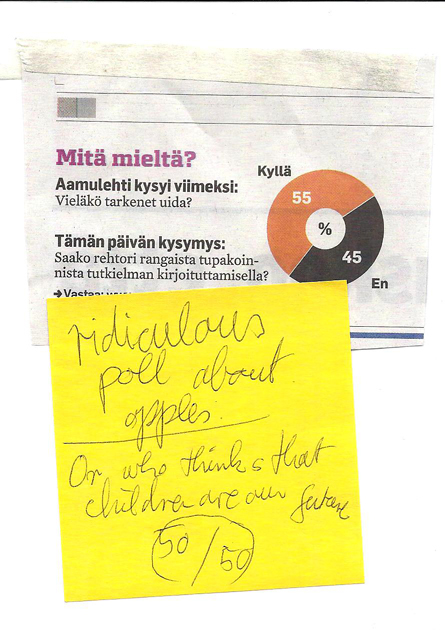 Mitä mieltä?
Aamulehti kysyi viimeksi:
Vieläkö tarkenet uida?
Kyllä
55
%
45
En
Tämän päivän kysymys:
Saako rehtori rangaista tupakoin-
nista tutkielman kirjoituttamisella?
➔Vastaa:
ridiculous
poll about
apples.
Or who thinks that
children are our future
50/50